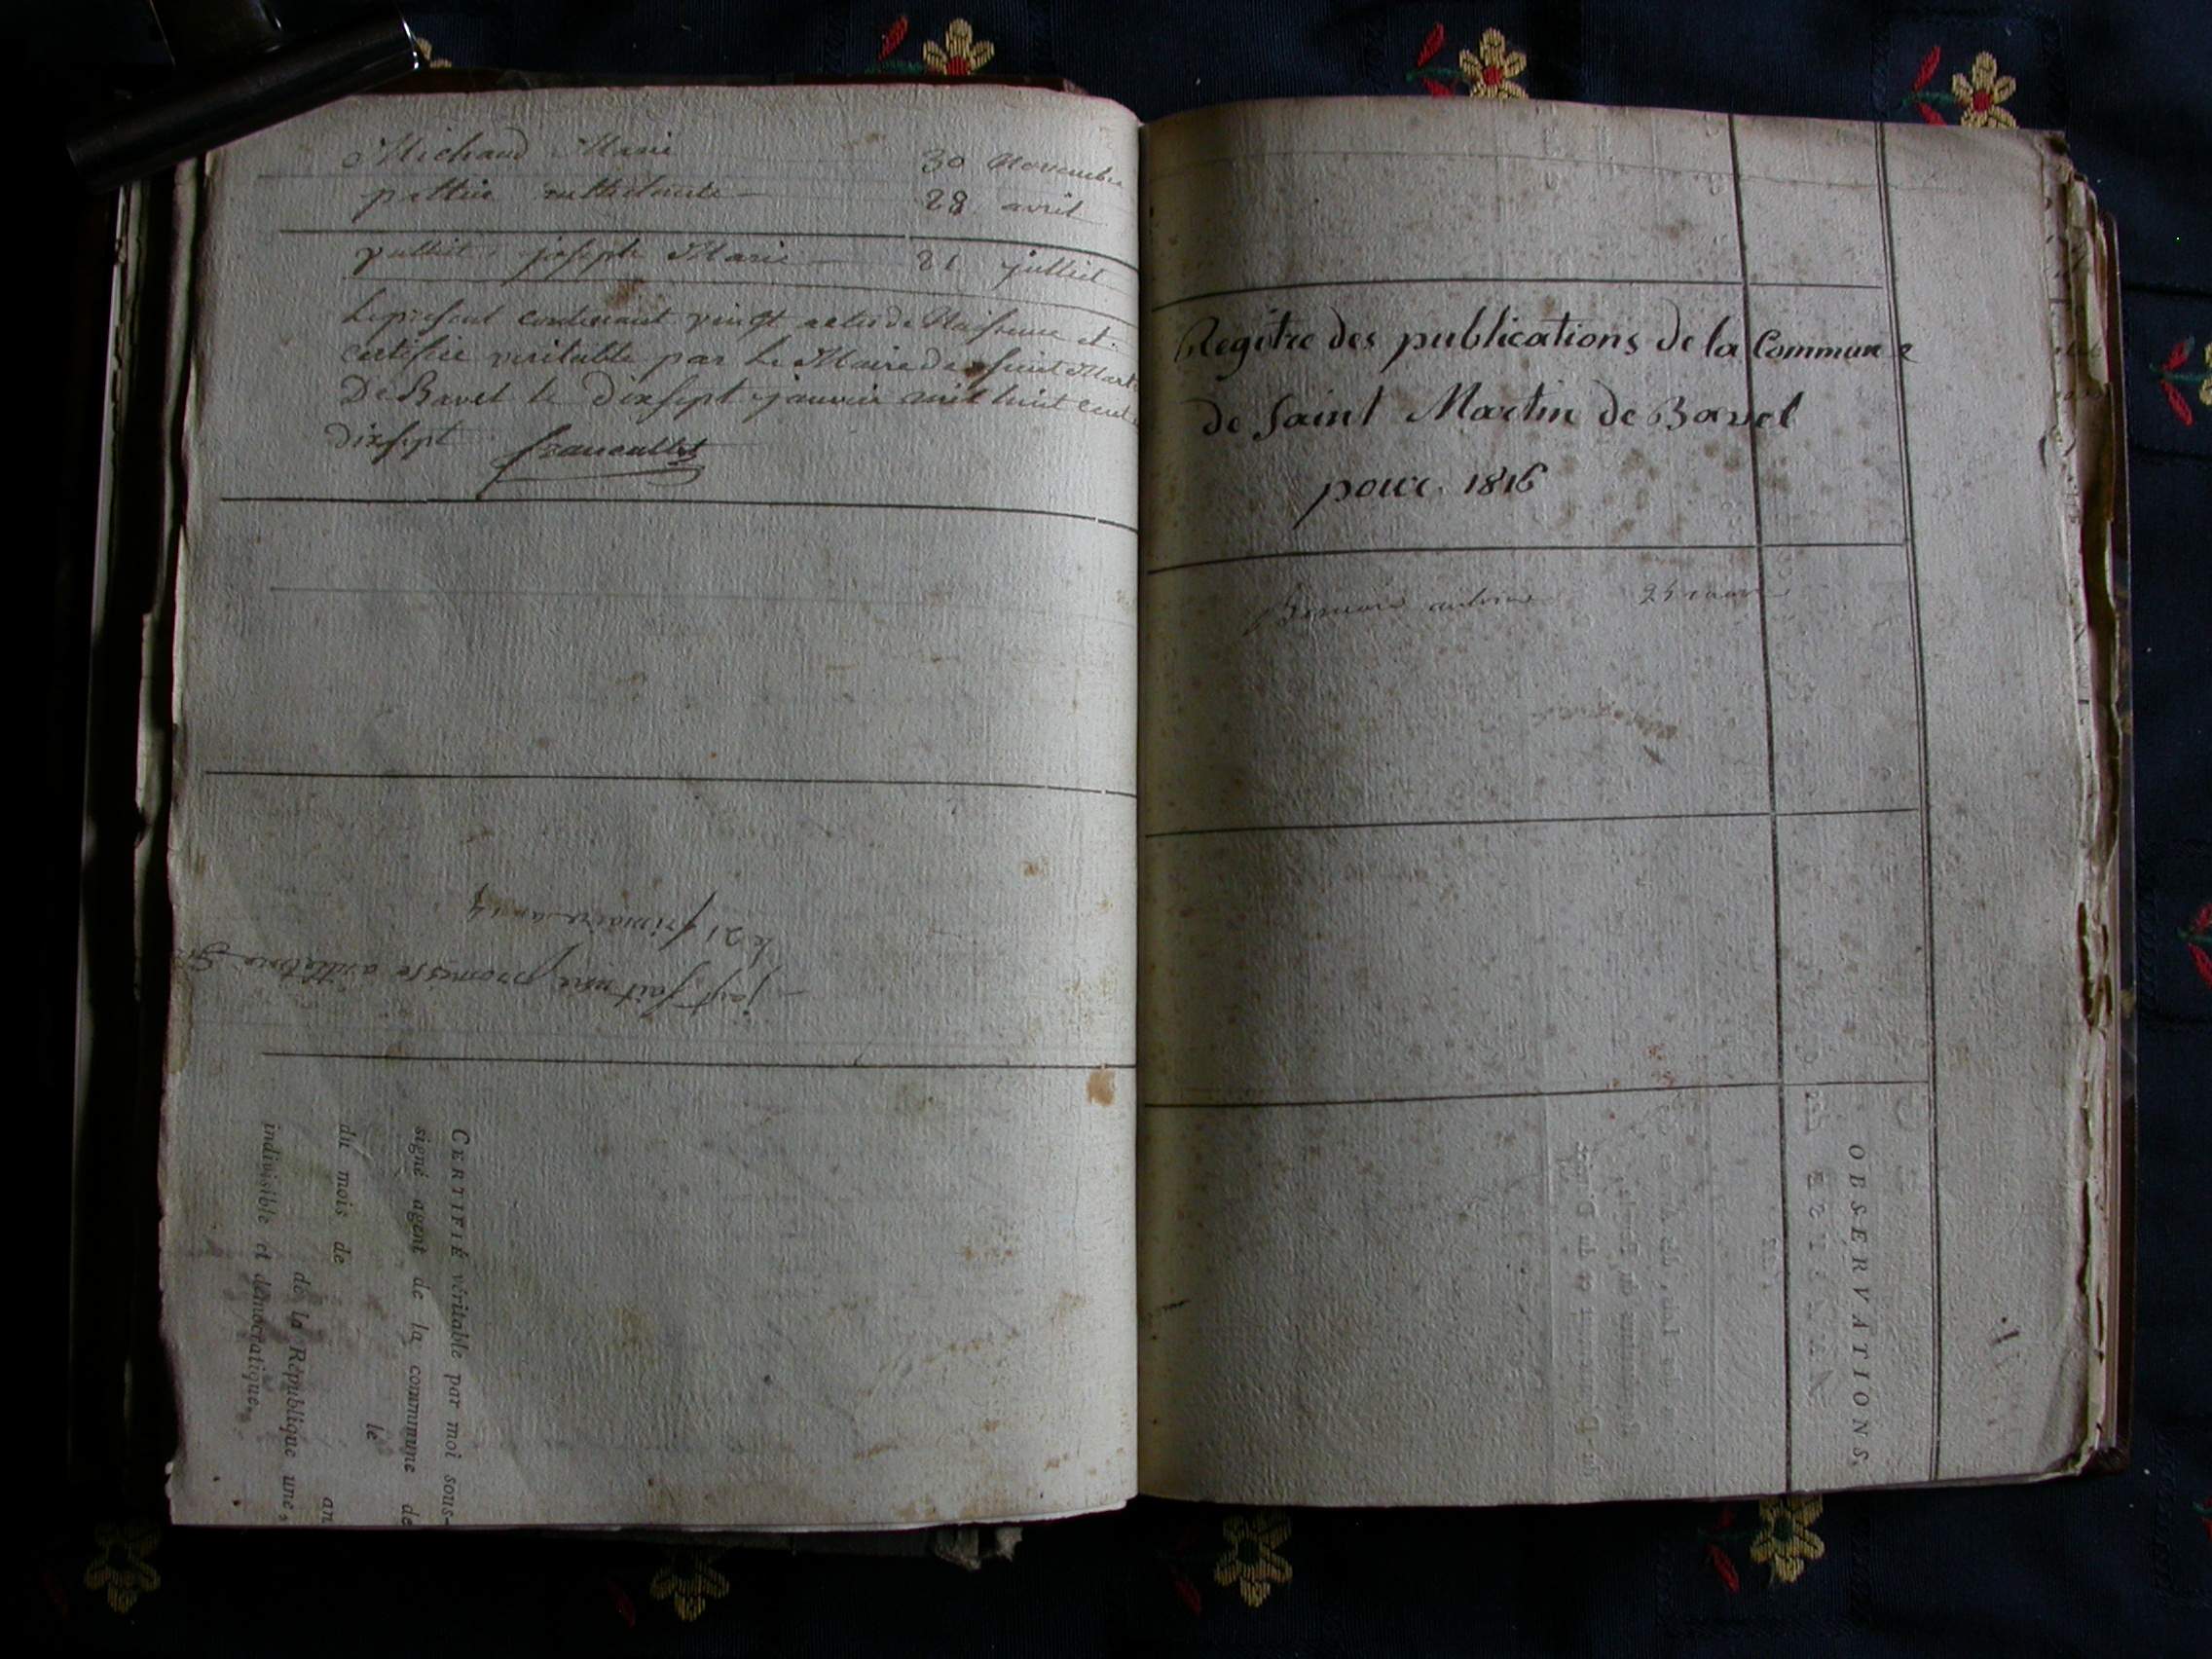 Michaud Marie 30 Novembre
28 avril
joseph Marie 21 julliet
Le present contenant vingt actes de Naissance et
certifiée veritable par le Maire de saint Mart
De Bavel le dixsept janvier mil huit cent
dixsept
jay fait une promesse
le 21 frimaire an 14
CERTIFIÉ véritable par moi sous-
signé agent de la commune de
le
du mois de an
de la République une,
indivisible et démocratique.
Regitre des publications de la Commune
de Saint Martin de Bavel
pour 1816
antoine
OBSERVATIONS.